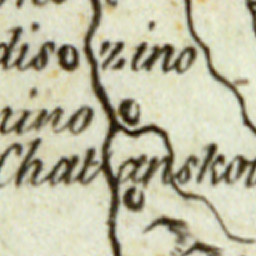 disozino
uino
Chatanskoi